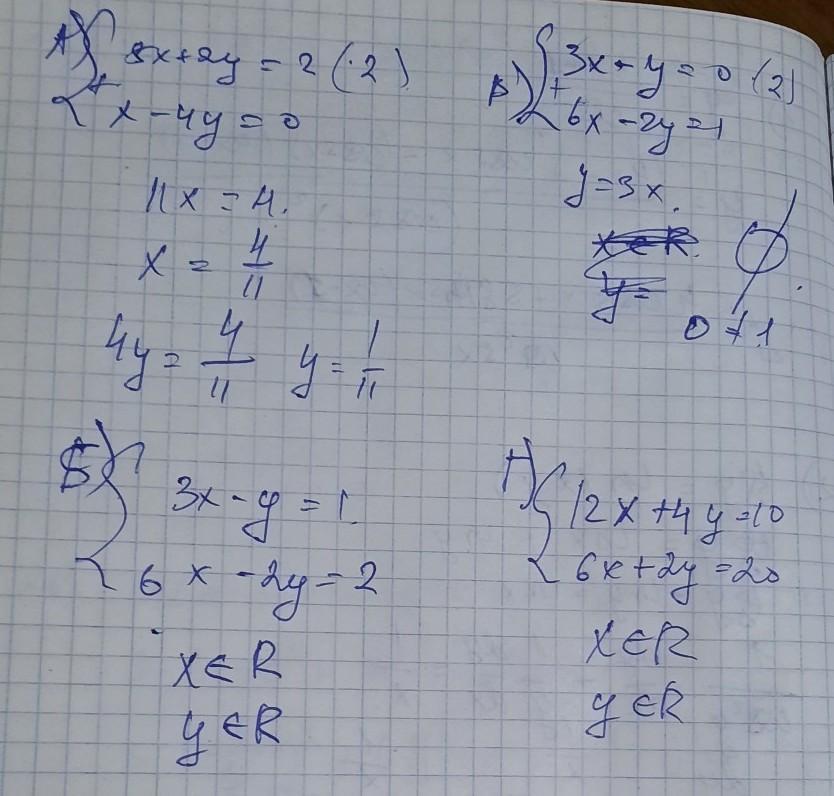 А) { 5x+2y = 2 (·2)
+ x - 4y = 0
11x = 4.
x = 4/11
4y = 4/11 y = 1/11
В) { 3x - y = 0 ·(2)
+ 6x - 2y = 1
y = 3x.
x ∈ R. ∅
y =
0 ≠ 1
Б) { 3x - y = 1.
6x - 2y = 2
x ∈ R
y ∈ R
Г) { 12x + 4y = 10
6x + 2y = 20
x ∈ R
y ∈ R